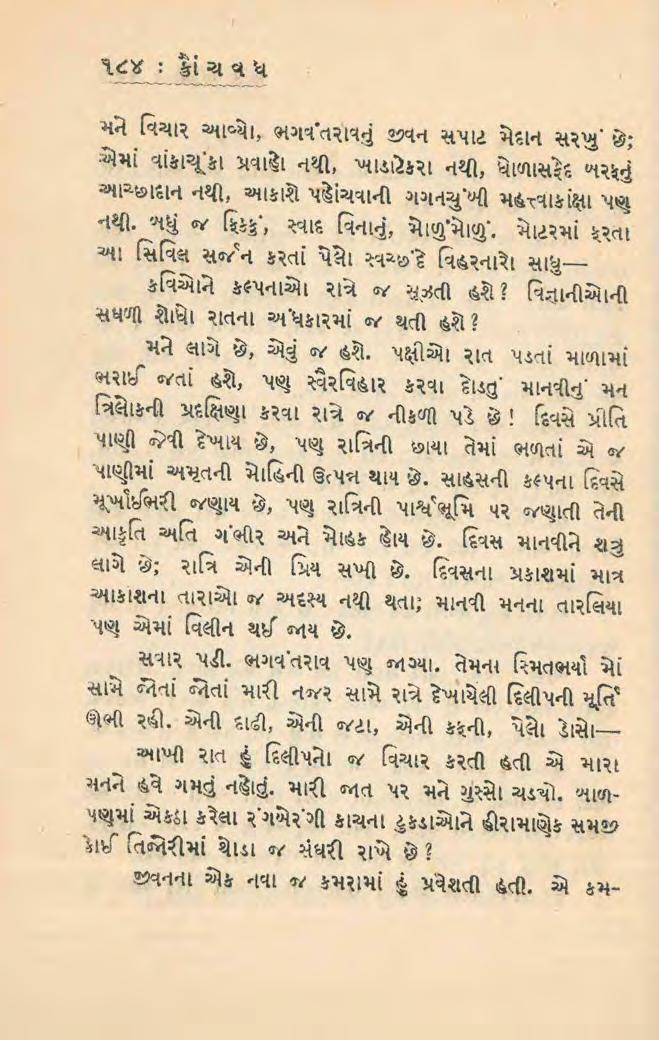 ૧૮૪ : ક્રૌંચવધ
મને વિચાર આવ્યો, ભગવંતરાવનું જીવન સપાટ મેદાન સરખું છે;
એમાં વાંકાચૂંકા પ્રવાહો નથી, ખાડાટેકરા નથી, ધોળાસફેદ બરફનું
આચ્છાદાન નથી, આકાશે પહોંચવાની ગગનચુંબી મહત્ત્વાકાંક્ષા પણ
નથી. બધું જ ફિક્કું, સ્વાદ વિનાનું, મોળુંમોળું. મોટરમાં ફરતા
આ સિવિલ સર્જન કરતાં પેલો સ્વચ્છંદે વિહરનારો સાધુ—
કવિઓને કલ્પનાઓ રાત્રે જ સૂઝતી હશે? વિજ્ઞાનીઓની
સઘળી શોધો રાતના અંધકારમાં જ થતી હશે?
મને લાગે છે, એવું જ હશે. પક્ષીઓ રાત પડતાં માળામાં
ભરાઈ જતાં હશે, પણ સ્વૈરવિહાર કરવા દોડતું માનવીનું મન
ત્રિલોકની પ્રદક્ષિણા કરવા રાત્રે જ નીકળી પડે છે! દિવસે પ્રીતિ
પાણી જેવી દેખાય છે, પણ રાત્રિની છાયા તેમાં ભળતાં એ જ
પાણીમાં અમૃતની મોહિની ઉત્પન્ન થાય છે. સાહસની કલ્પના દિવસે
મૂર્ખાઈભરી જણાય છે, પણ રાત્રિની પાર્શ્વભૂમિ પર જણાતી તેની
આકૃતિ અતિ ગંભીર અને મોહક હોય છે. દિવસ માનવીને શત્રુ
લાગે છે; રાત્રિ એની પ્રિય સખી છે. દિવસના પ્રકાશમાં માત્ર
આકાશના તારાઓ જ અદૃશ્ય નથી થતા; માનવી મનના તારલિયા
પણ એમાં વિલીન થઈ જાય છે.
સવાર પડી. ભગવંતરાવ પણ જાગ્યા. તેમના સ્મિતભર્યા મોં
સામે જોતાં જોતાં મારી નજર સામે રાત્રે દેખાયેલી દિલીપની મૂર્તિ
ઊભી રહી. એની દાઢી, એની જટા, એની કફની, પેલો ડોસો—
આખી રાત હું દિલીપનો જ વિચાર કરતી હતી એ મારા
મનને હવે ગમતું નહોતું. મારી જાત પર મને ગુસ્સો ચડ્યો. બાળ-
પણમાં એકઠા કરેલા રંગબેરંગી કાચના ટુકડાઓને હીરામાણેક સમજી
કોઈ તિજોરીમાં થોડા જ સંઘરી રાખે છે?
જીવનના એક નવા જ કમરામાં હું પ્રવેશતી હતી. એ કમ-